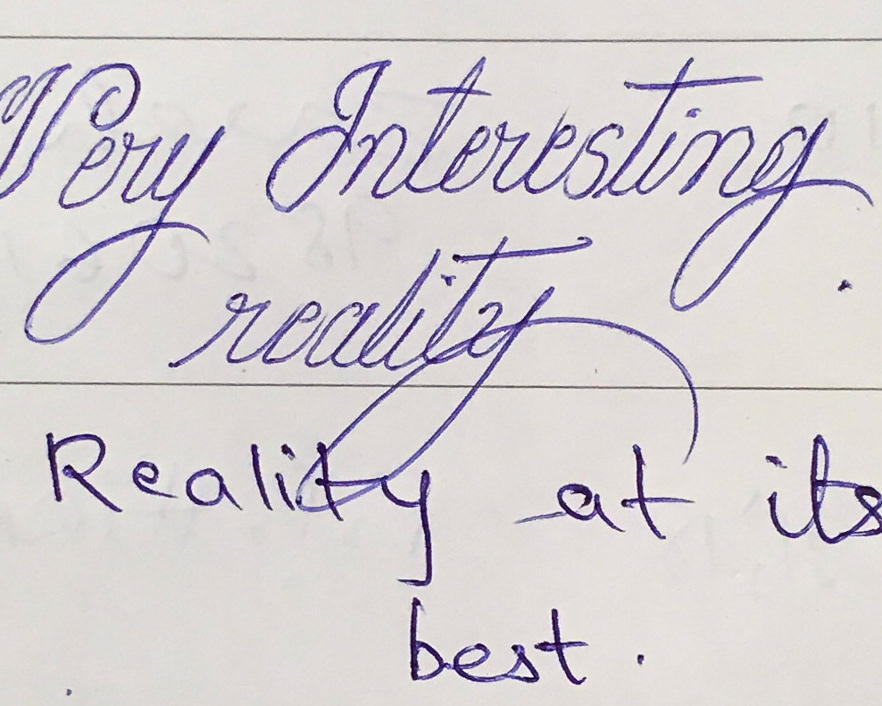 Very Interesting
reality
Reality at its
best.